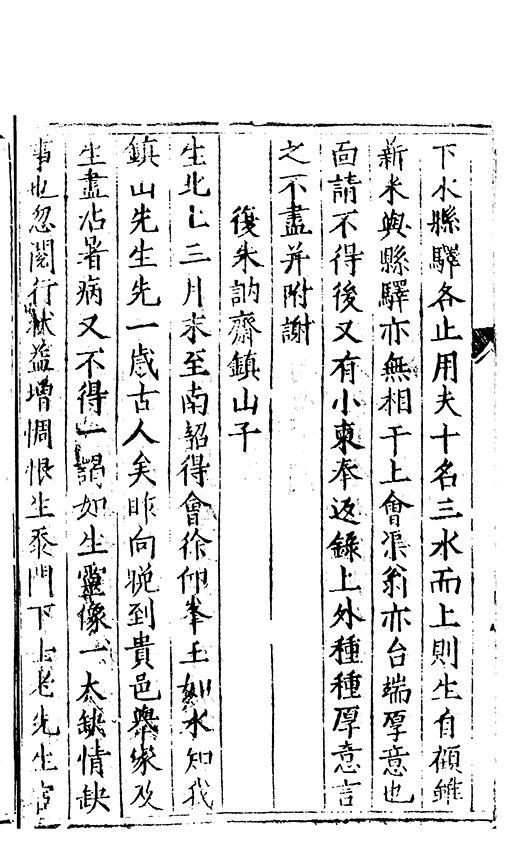 下水縣驛各止用夫十名三水而上則生自顧雖
新米與縣驛亦無相干上會渠翁亦台端厚意也
面請不得後又有小柬奉返錄上外種種厚意言
之不盡并附謝
復朱訥齋鎮山子
生北上三月末至南韶得會徐仰峯王如水知我
鎮山先生先一歲古人矣昨向晚到貴邑舉家及
生盡沾暑病又不得一謁如生靈像一大缺情缺
事也忽閱行狀益增惆悵生忝門下士老先生官